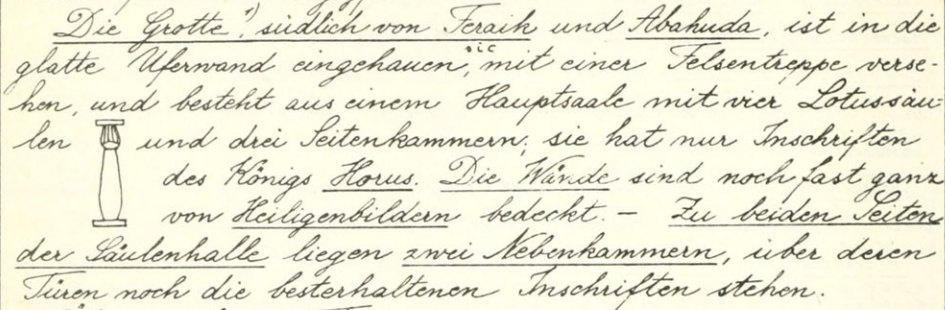 Die Grotte¹⁾, südlich von Feraik und Abahuda, ist in die
glatte Uferwand eingehauen, sic mit einer Felsentreppe verse-
hen, und besteht aus einem Hauptsaale mit vier Lotussäu-
len und drei Seitenkammern; sie hat nur Inschriften
des Königs Horus. Die Wände sind noch fast ganz
von Heiligenbildern bedeckt. — Zu beiden Seiten
der Säulenhalle liegen zwei Nebenkammern, über deren
Türen noch die besterhaltenen Inschriften stehen.